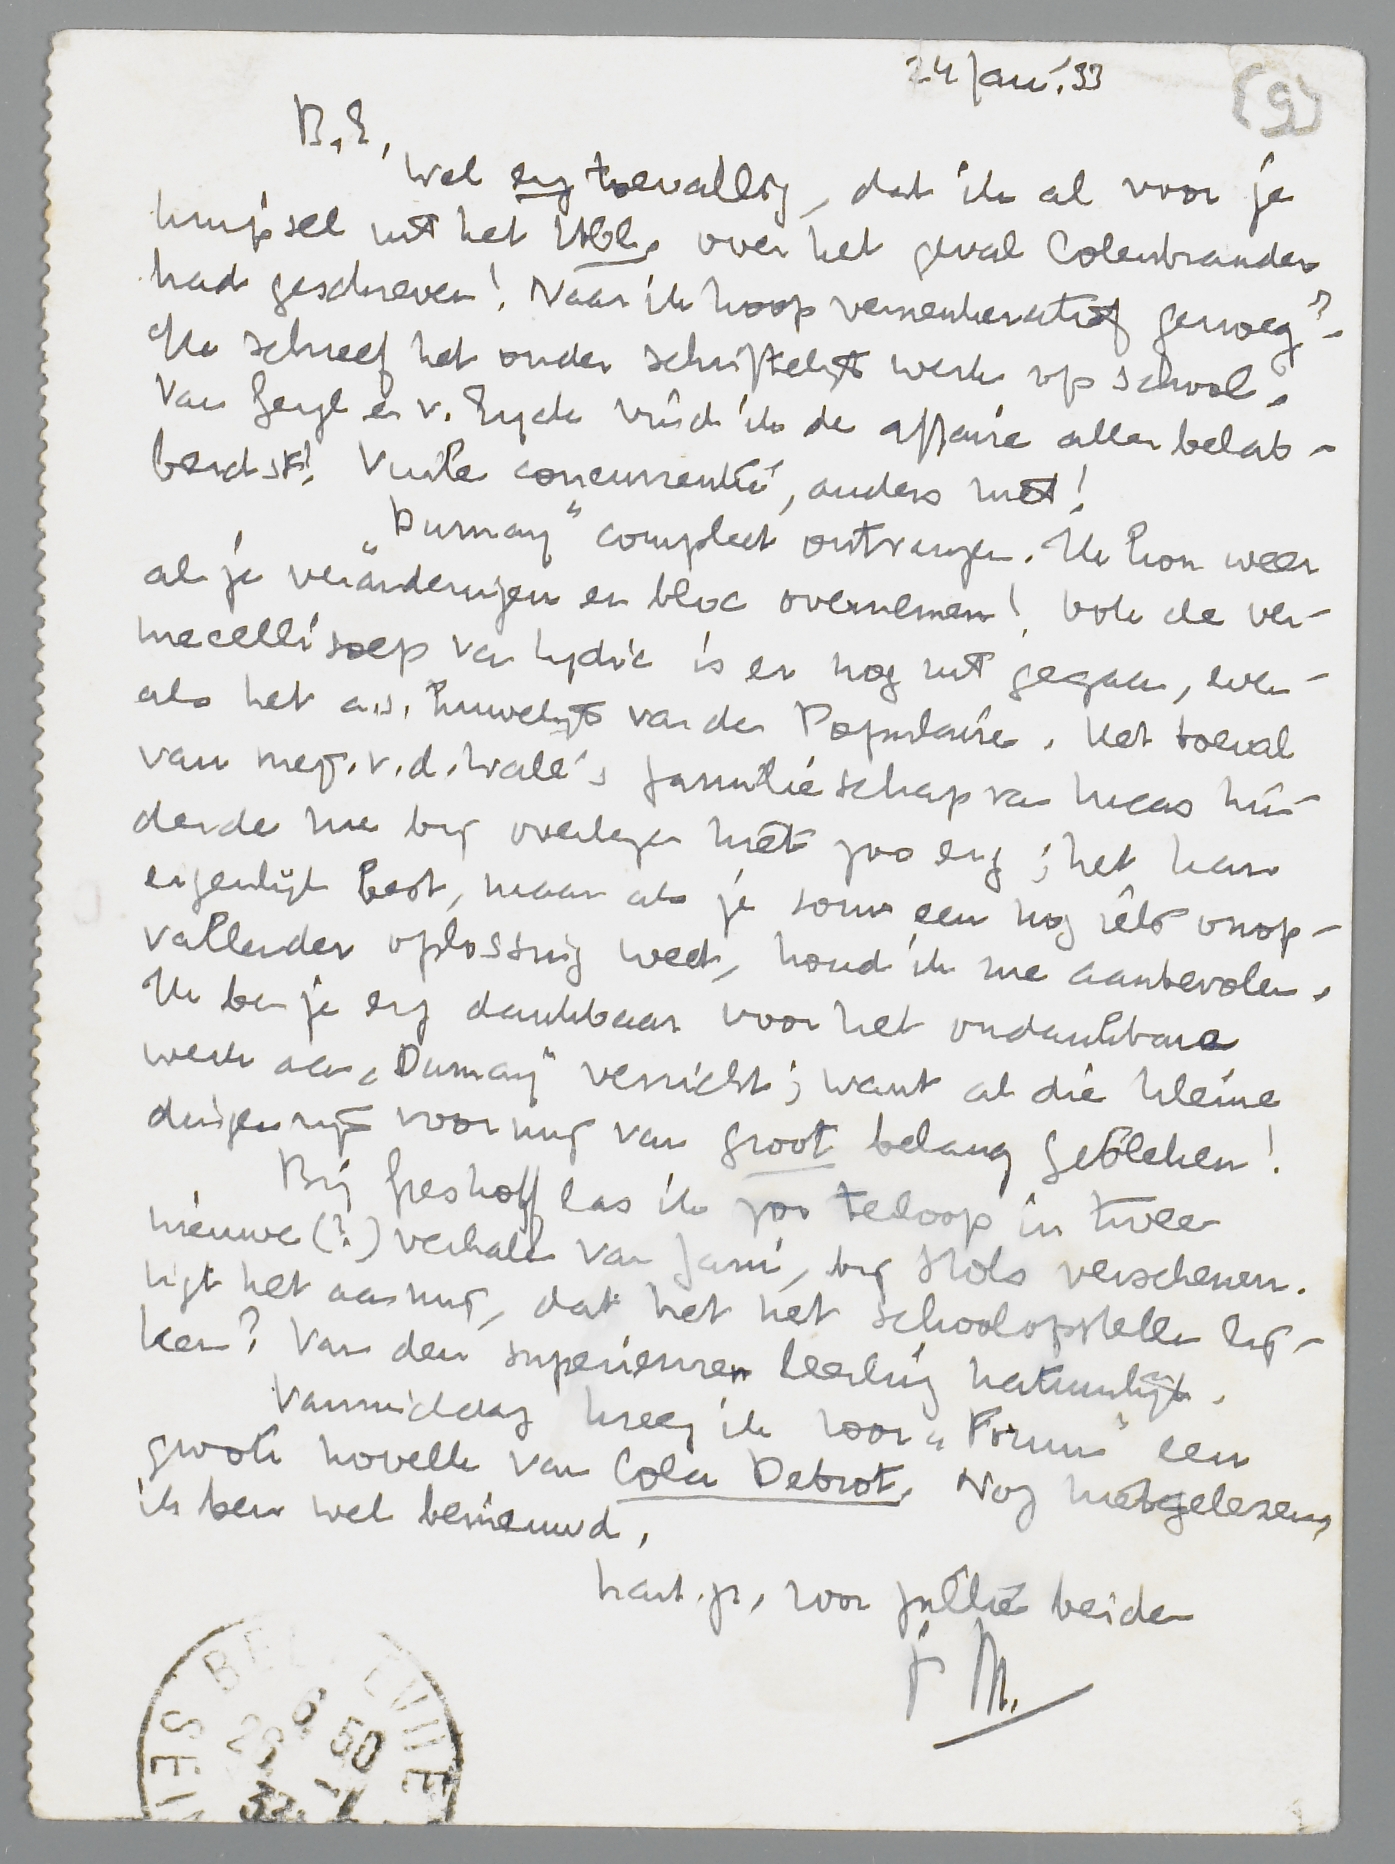 24 Jan. '33
(9)
B.E.,
Wel erg toevallig, dat ik al voor je
knipsel uit het Hbl. over het geval Colenbrander
had geschreven! Naar ik hoop verseukeratief genoeg?
Ik schreef het onder schriftelijk werk op school.
Van Geyl en v. Eyck vind ik de affaire allerbelab-
berdst! Vuile concurrentie, anders niet!
„Dumay” compleet ontvangen. Ik kon weer
al je veranderingen en bloc overnemen! Ook de ver-
micellisoep van Lydia is er nog uit gegaan, even-
als het a.s. huwelijk van den Populaire. Het toeval
van mej. v.d. Wall's familieschap van Lucas hin-
derde me bij overlezen niet zoo erg; het kan
eigenlijk best, maar als je soms een nog iets onop-
vallender oplossing weet, houd ik me aanbevolen.
Ik ben je erg dankbaar voor het ondankbare
werk aan „Dumay” verricht; want al die kleine
dingen zijn voor mij van groot belang gebleken!
Bij Greshoff las ik zoo terloop in twee
nieuwe (?) verhalen van Jani, bij Stols verschenen.
Ligt het aan mij, dat het net schoolopstellen lij-
ken? Van den superieuren leerling natuurlijk.
Vanmiddag kreeg ik voor „Forum” een
groote novelle van Cola Debrot. Nog niet gelezen,
ik ben wel benieuwd.
hart. gr. voor jullie beiden
je M.
BELLEVUE
6 50
26 -1
33